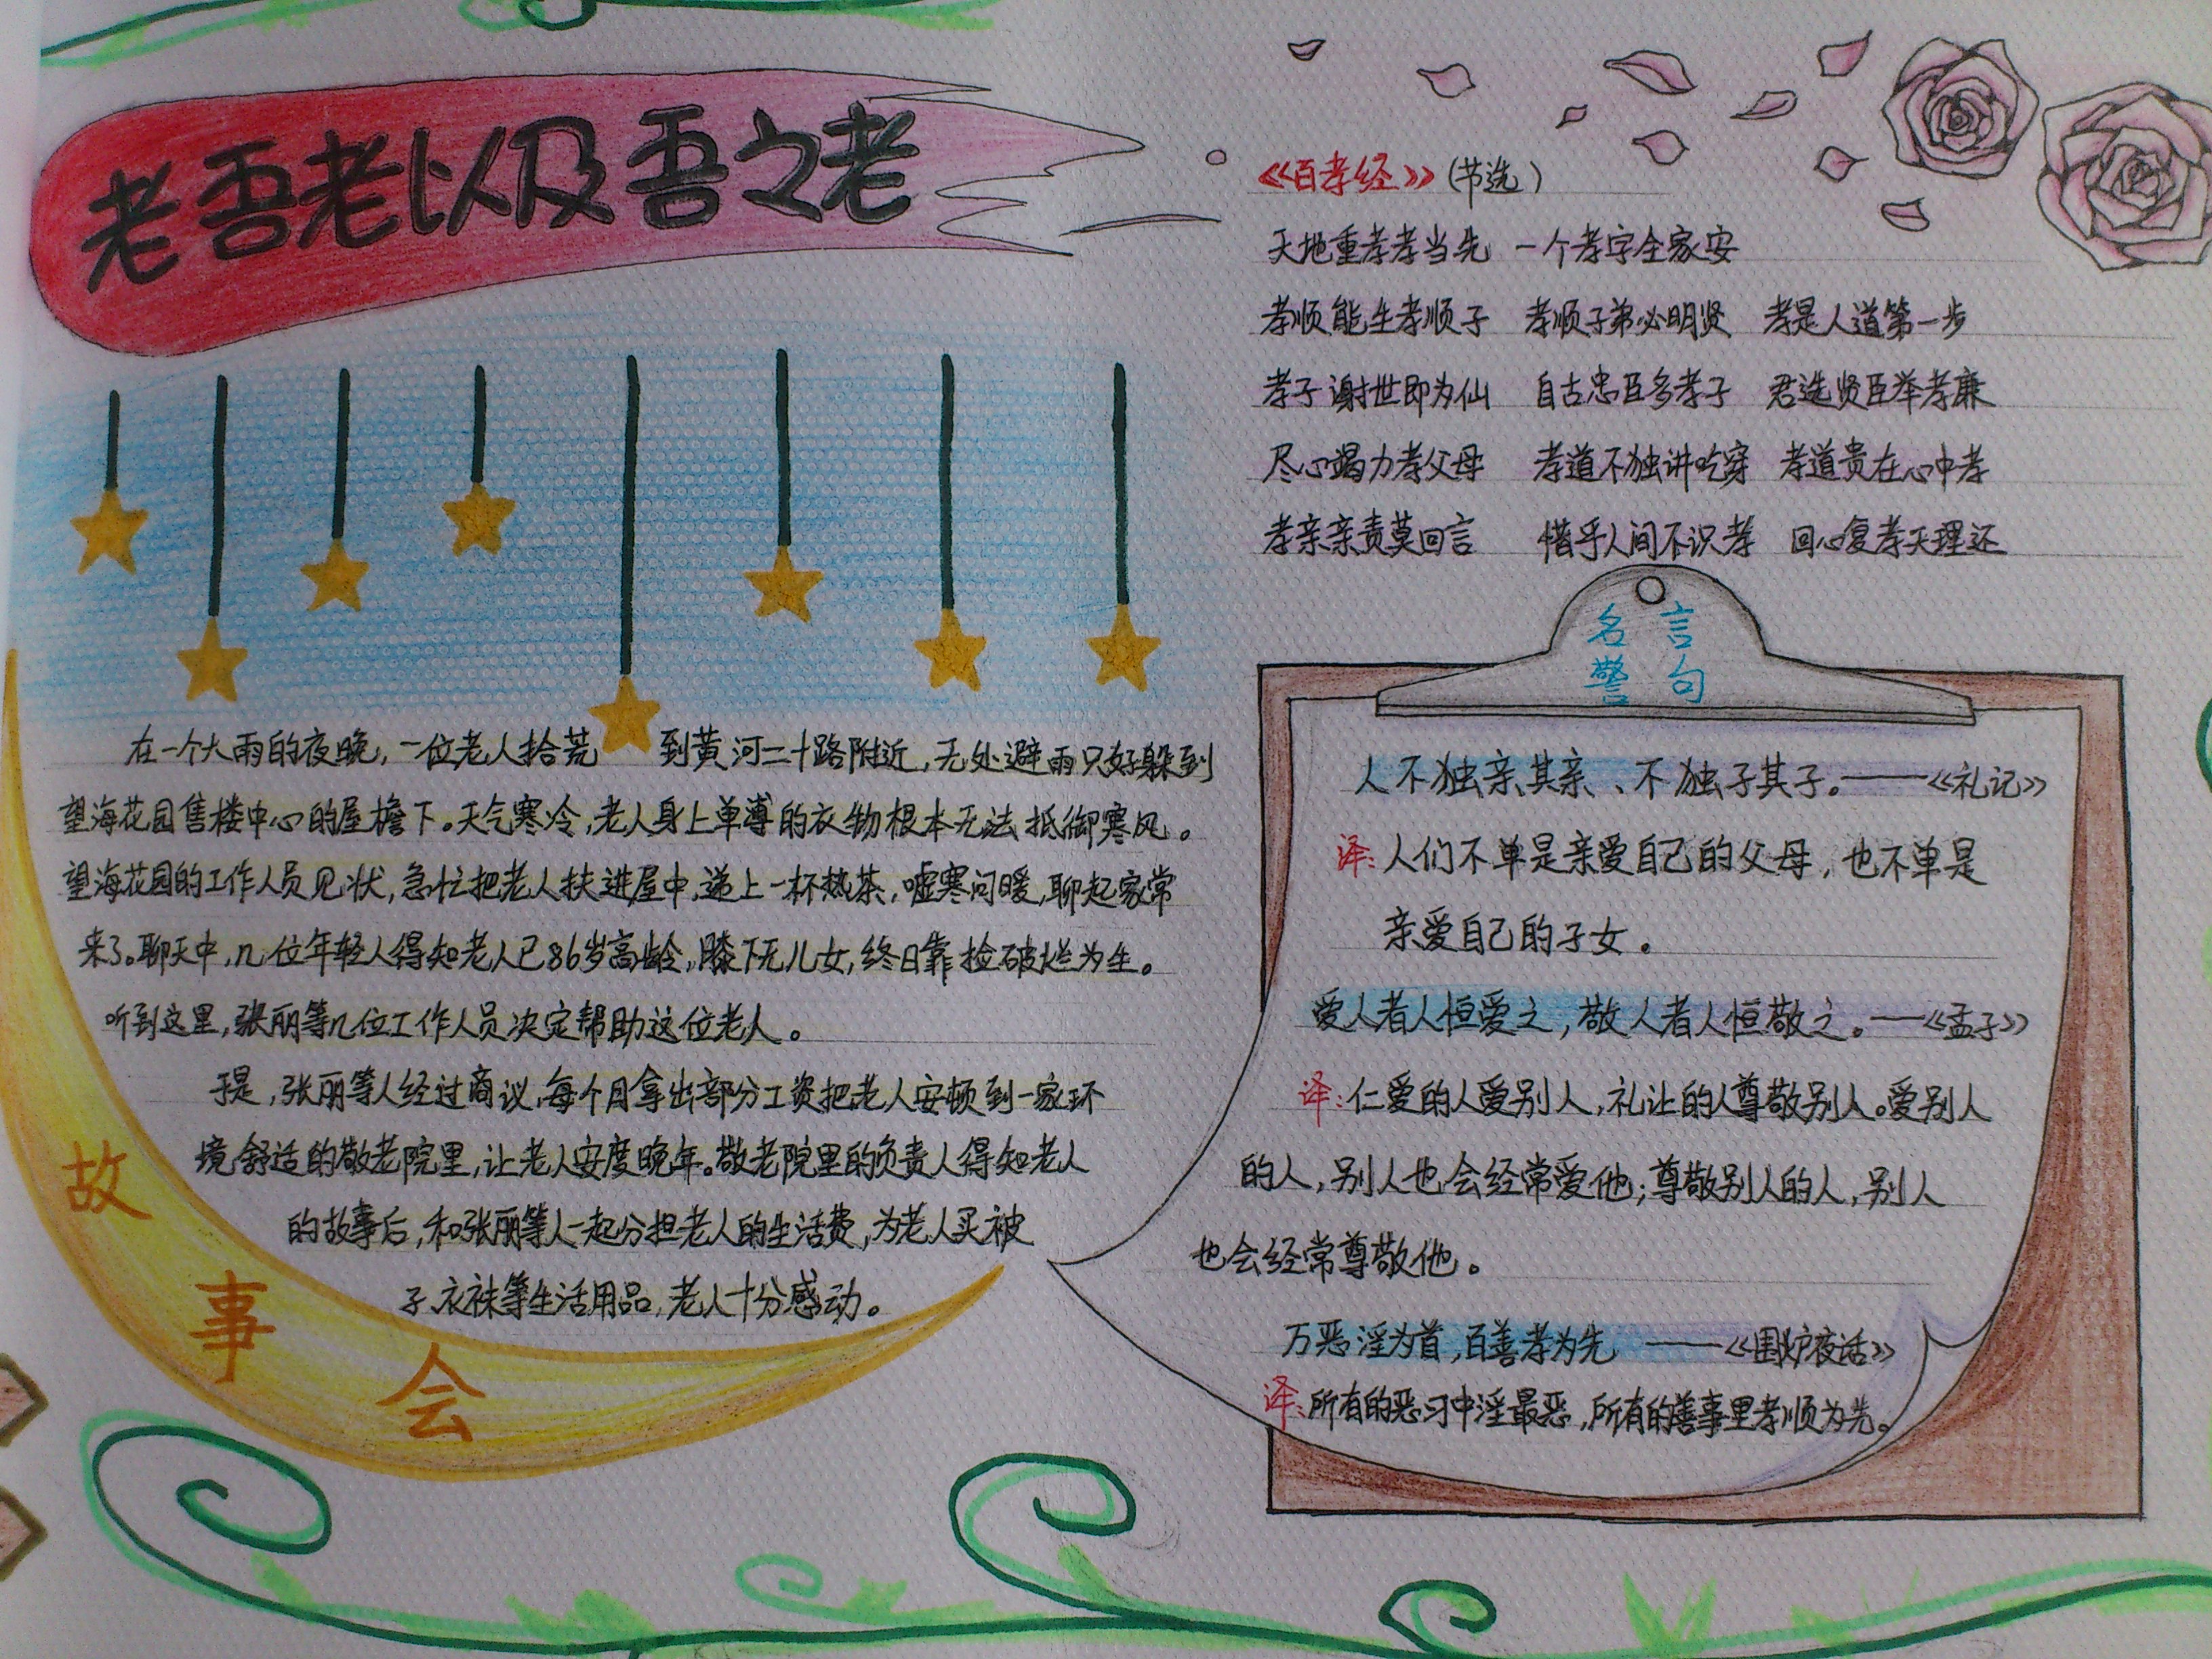 老吾老以及吾之老
在一个大雨的夜晚，一位老人拾荒到黄河二十路附近，无处避雨只好躲到
望海花园售楼中心的屋檐下。天气寒冷，老人身上单薄的衣物根本无法抵御寒风。
望海花园的工作人员见状，急忙把老人扶进屋中，递上一杯热茶，嘘寒问暖，聊起家常
来了。聊天中，几位年轻人得知老人已86岁高龄，膝下无儿女，终日靠捡破烂为生。
听到这里，张丽等几位工作人员决定帮助这位老人。
于是，张丽等人经过商议，每个月拿出部分工资把老人安顿到一家环
境舒适的敬老院里，让老人安度晚年。敬老院里的负责人得知老人
的故事后，和张丽等人一起分担老人的生活费，为老人买被
子、衣袜等生活用品，老人十分感动。
故事会
《百孝经》（节选）
天地重孝孝当先 一个孝字全家安
孝顺能生孝顺子 孝顺子弟必明贤 孝是人道第一步
孝子谢世即为仙 自古忠臣多孝子 君选贤臣举孝廉
尽心竭力孝父母 孝道不独讲吃穿 孝道贵在心中孝
孝亲亲责莫回言 惜乎人间不识孝 回心复孝天理还
名言
警句
人不独亲其亲、不独子其子。——《礼记》
译：人们不单是亲爱自己的父母，也不单是
亲爱自己的子女。
爱人者人恒爱之，敬人者人恒敬之。——《孟子》
译：仁爱的人爱别人，礼让的人尊敬别人。爱别人
的人，别人也会经常爱他；尊敬别人的人，别人
也会经常尊敬他。
万恶淫为首，百善孝为先 ——《围炉夜话》
译：所有的恶习中淫最恶，所有的善事里孝顺为先。